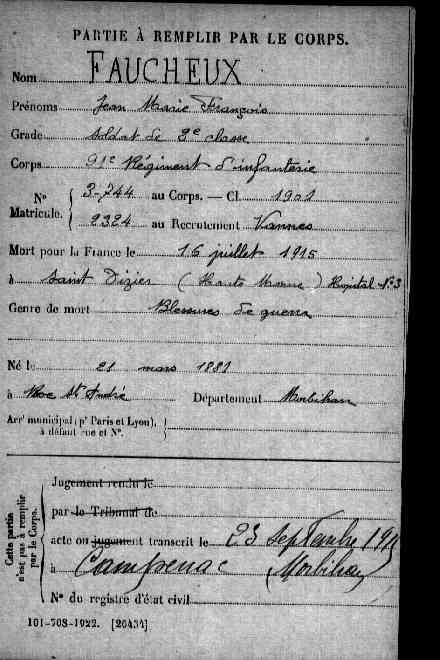 PARTIE À REMPLIR PAR LE CORPS.
Nom FAUCHEUX
Prénoms Jean Marie François
Grade Soldat de 2e classe
Corps 91e Régiment d'infanterie
N° Matricule. { 3-744 au Corps. — Cl. 1901
2324 au Recrutement Vannes
Mort pour la France le 16 juillet 1915
à Saint Dizier (Haute Marne) Hopital N°3
Genre de mort Blessures de guerre
Né le 21 mars 1881
à Roc St André Département Morbihan
Arrt municipal (pr Paris et Lyon),
à défaut rue et N°.
Cette partie n'est pas à remplir par le Corps.
Jugement rendu le
par le Tribunal de
acte ou jugement transcrit le 23 Septembre
à Campénéac Morbihan
N° du registre d'état civil
101-708-1922. [26434]